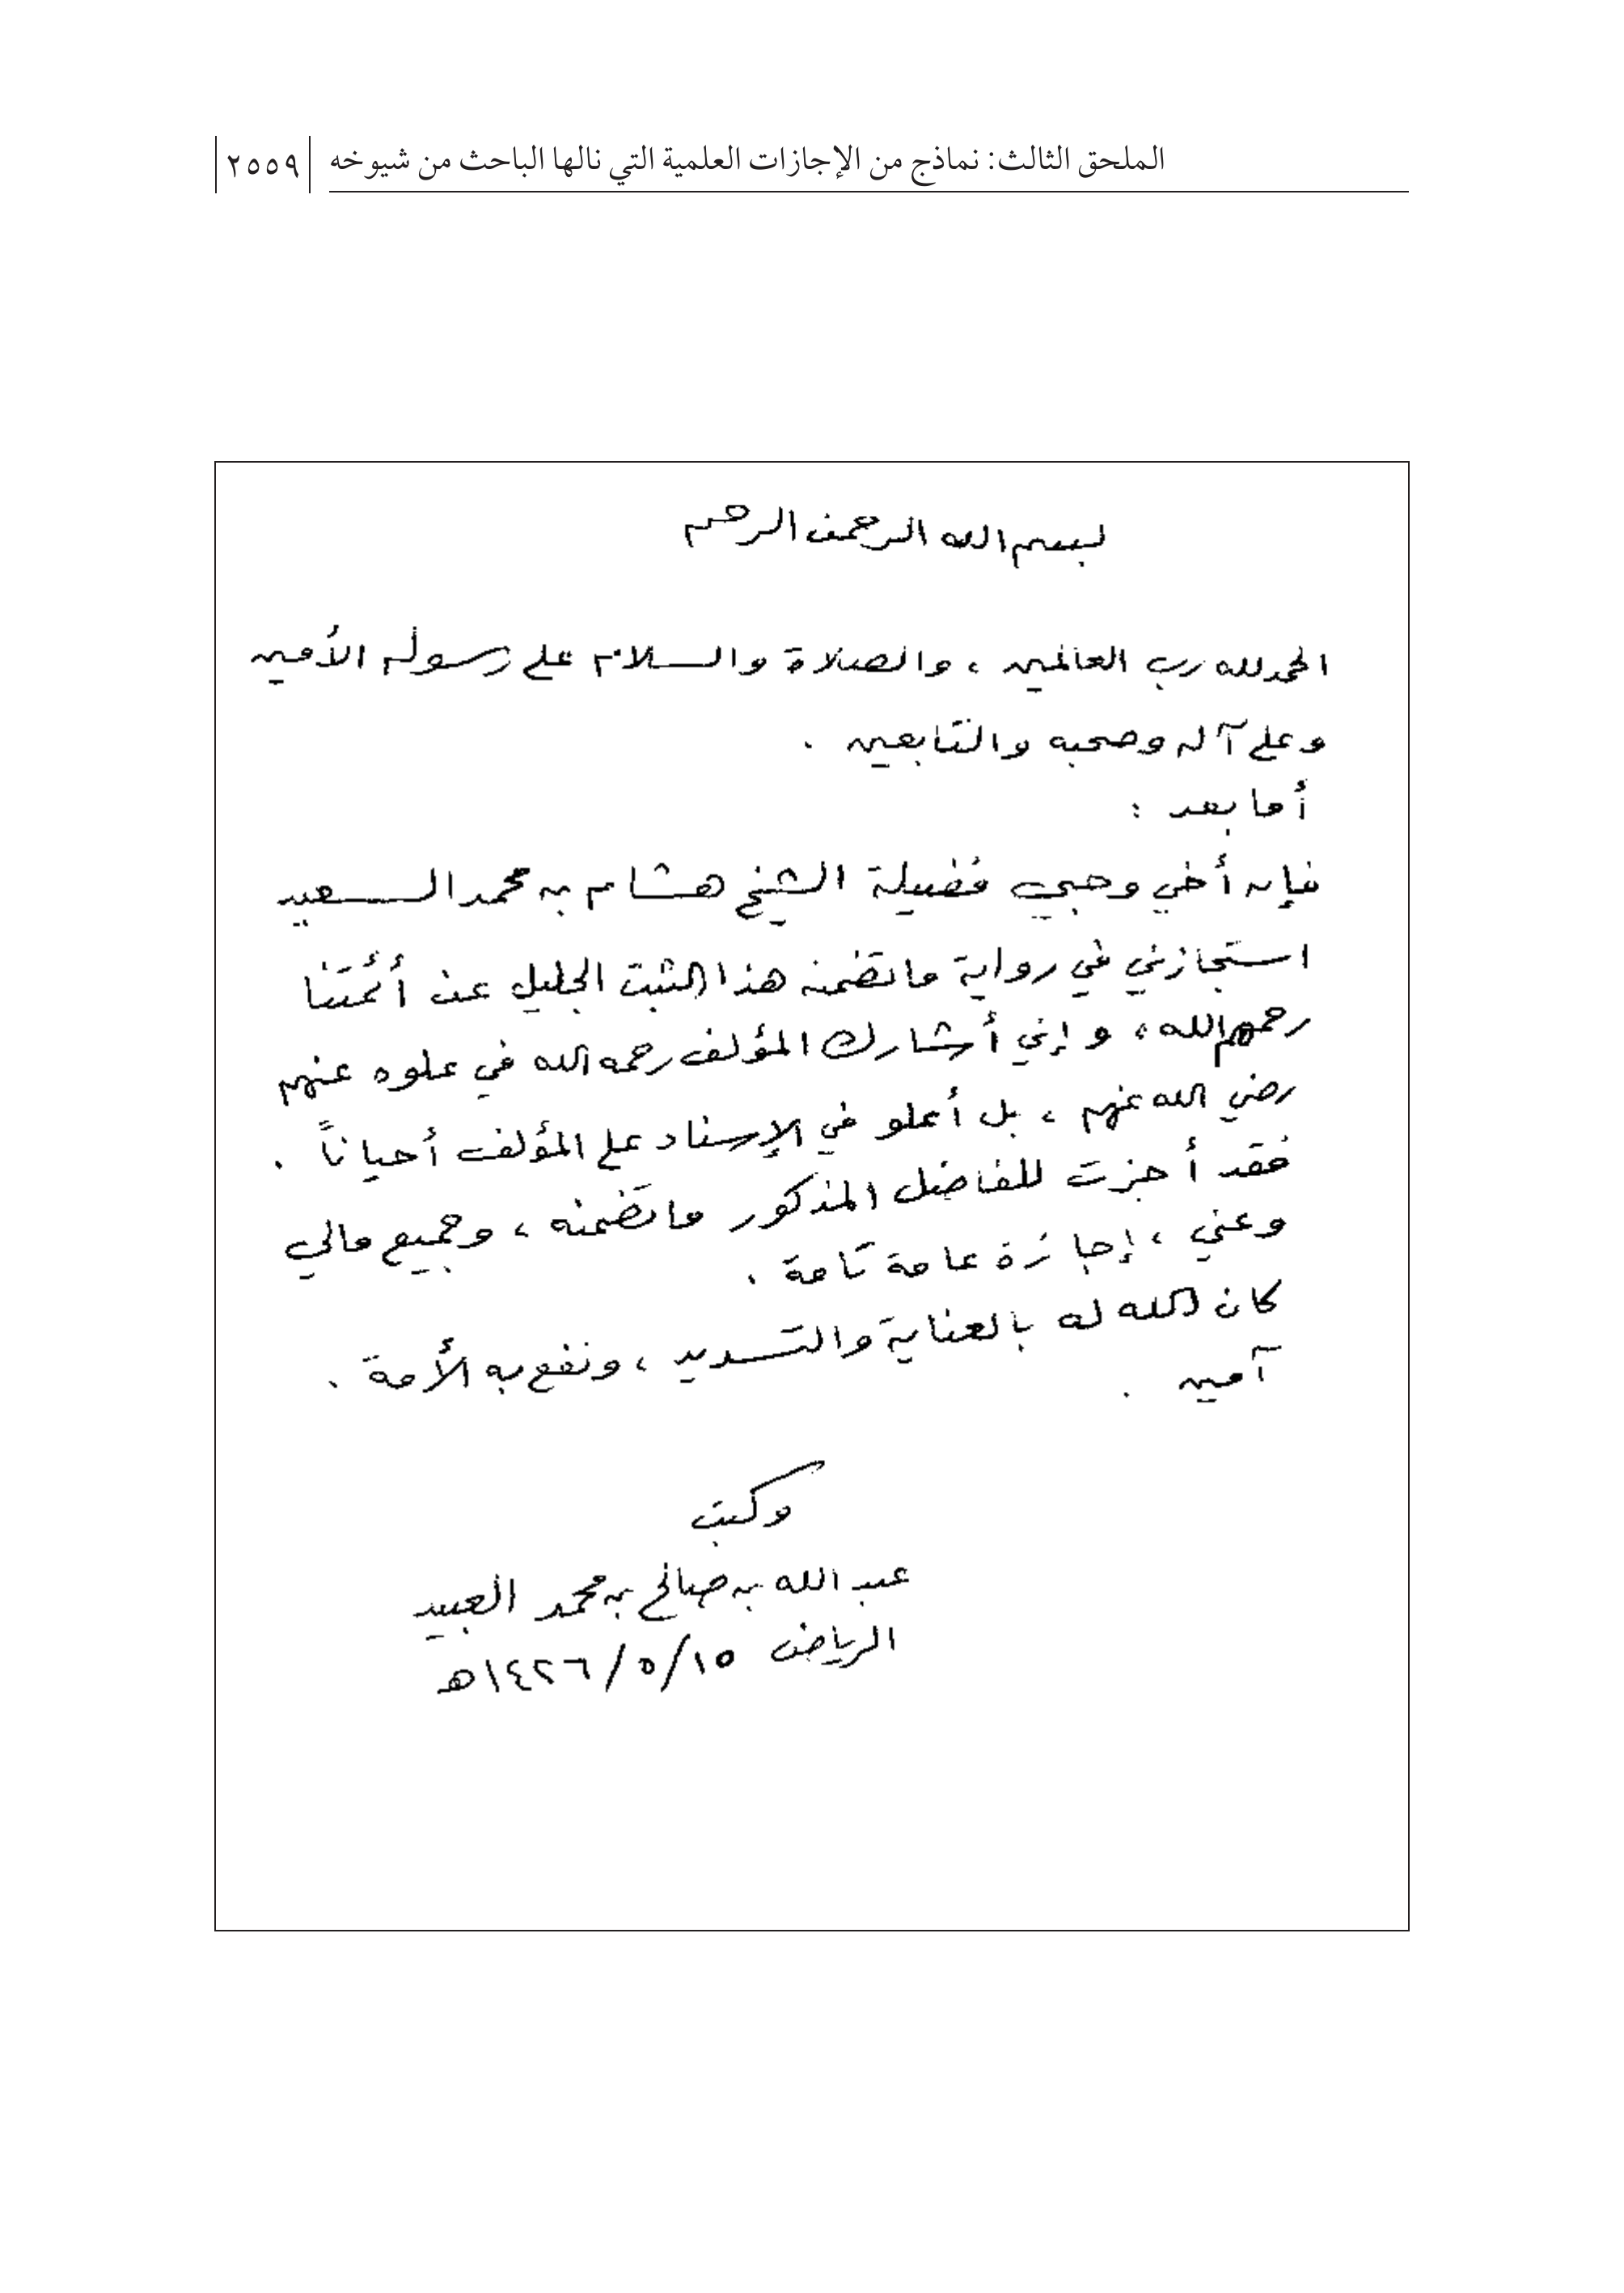 الملحق الثالث: نماذج من الإجازات العلمية التي نالها الباحث من شيوخه ٢٥٥٩
بسم الله الرحمن الرحيم
الحمد لله رب العالمين ، والصلاة والسلام على رسوله الأمين
وعلى آله وصحبه والتابعين .
أما بعد :
فإن أخي وحبي فضيلة الشيخ هشام بن محمد السعيد
استجازني في رواية ما تضمنه هذا الثبت الجليل عن أئمتنا
رحمهم الله ، وإني أشارك المؤلف رحمه الله في علوه عنهم
رضي الله عنهم ، بل أعلو في الإسناد على المؤلف أحياناً .
فقد أجزت للفاضل المذكور ما تضمنه ، وجميع مالي
وعني ، إجازة عامة تامة .
كان الله له بالعناية والتسديد ، ونفع به الأمة .
آمين .
وكتب
عبد الله بن صالح بن محمد العبيد
الرياض ١٥/٥/١٤٢٦هـ